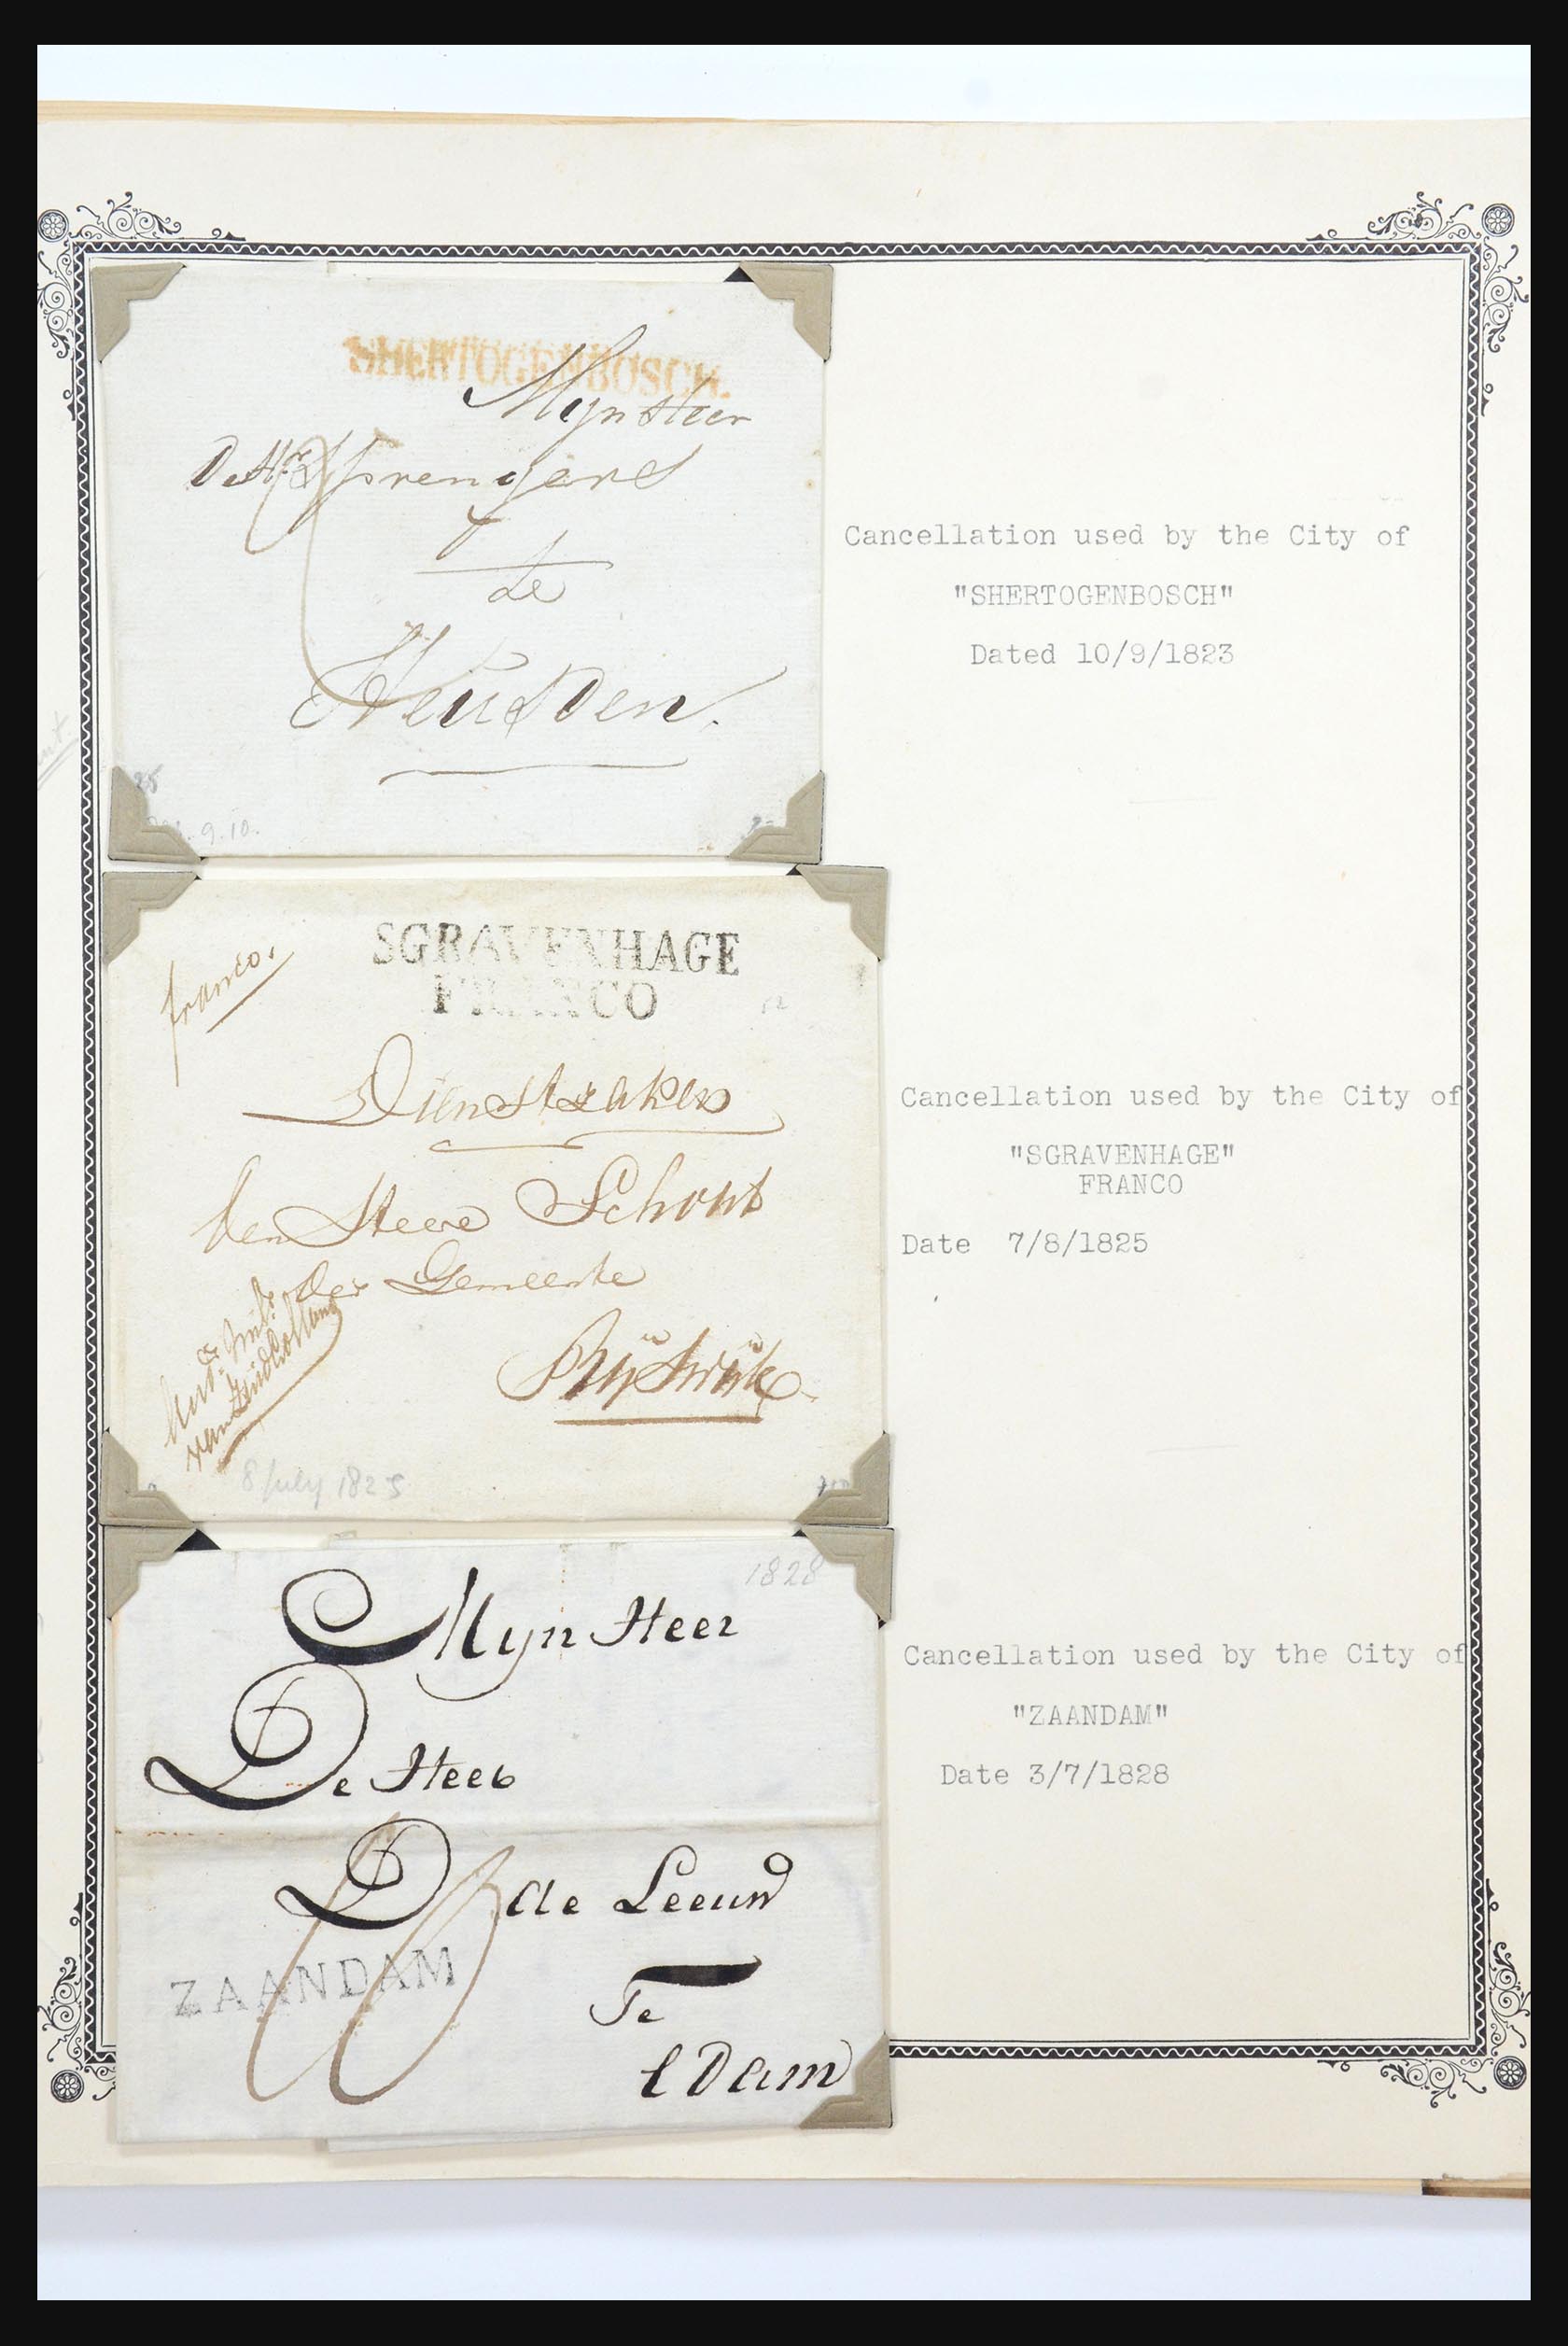 SHERTOGENBOSCH.
Mynheer
Sprengers
te
Heusden.
25
9.10.
Cancellation used by the City of
"SHERTOGENBOSCH"
Dated 10/9/1823
franco.
SGRAVENHAGE
FRANCO
Dienstzaken
den Heere Schout
der Gemeente
Ryswyk
van Zuid Holland
8 july 1825
Cancellation used by the City of
"SGRAVENHAGE"
FRANCO
Date 7/8/1825
1828
Myn Heer
De Heer
D de Leeuw
ZAANDAM
Te
EDam
Cancellation used by the City of
"ZAANDAM"
Date 3/7/1828